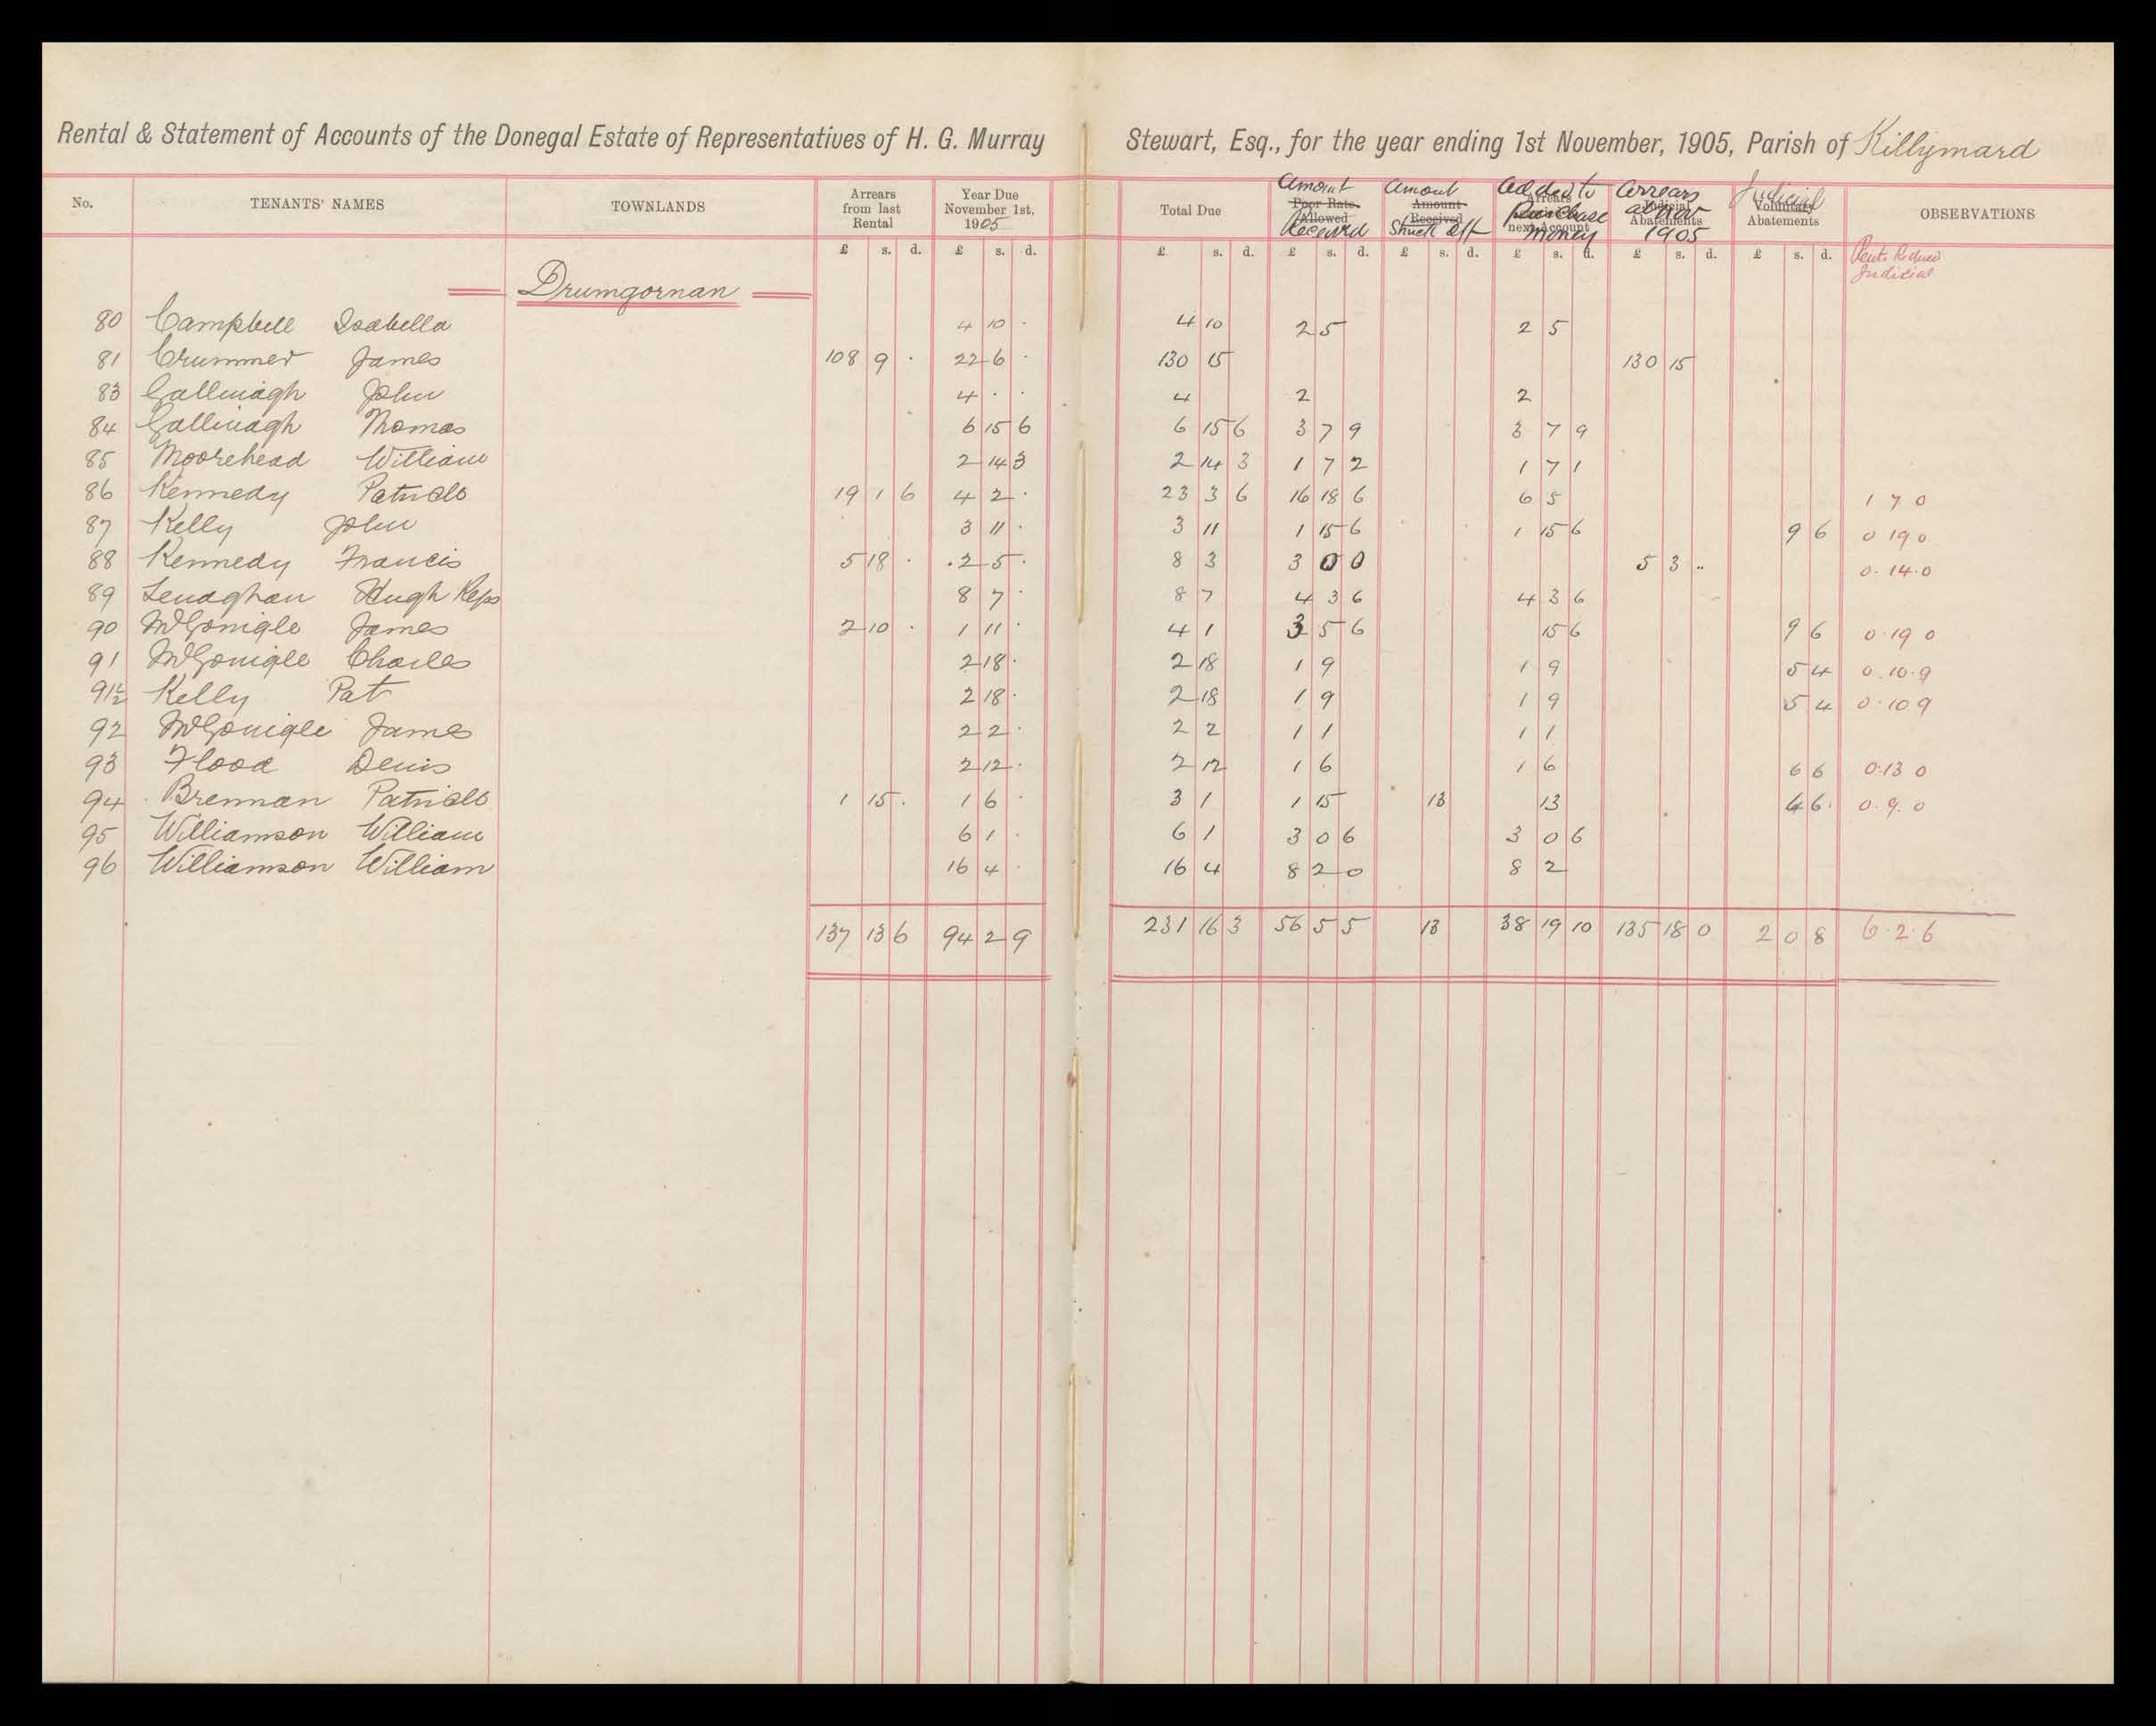 Rental & Statement of Accounts of the Donegal Estate of Representatives of H. G. Murray Stewart, Esq., for the year ending 1st November, 1905, Parish of Killymard
No. TENANTS' NAMES TOWNLANDS Arrears from last Rental Year Due November 1st, 1905 Total Due Poor Rate Allowed Amount Received Amount Received Amount Struck off Arrears next Account Added to Purchase Money Judicial Abatements Arrears at Nov 1905 Voluntary Judicial Abatements OBSERVATIONS
£ s. d. £ s. d. £ s. d. £ s. d. £ s. d. £ s. d. £ s. d. £ s. d. Rents Reduced
Judicial
Drumgornan
80 Campbell Isabella 4 10 · 4 10 2 5 2 5
81 Crummer James 108 9 · 22 6 · 130 15 130 15
83 Gallinagh John 4 · · 4 2 2
84 Gallinagh Thomas 6 15 6 6 15 6 3 7 9 3 7 9
85 Moorehead William 2 14 3 2 14 3 1 7 2 1 7 1
86 Kennedy Patrick 19 1 6 4 2 · 23 3 6 16 18 6 6 5 1 7 0
87 Kelly John 3 11 · 3 11 1 15 6 1 15 6 9 6 0 19 0
88 Kennedy Francis 5 18 · 2 5 · 8 3 3 0 0 5 3 .. 0.14.0
89 Lenaghan Hugh Reps 8 7 · 8 7 4 3 6 4 3 6
90 McGonigle James 2 10 · 1 11 · 4 1 3 5 6 15 6 9 6 0.19 0
91 McGonigle Charles 2 18 · 2 18 1 9 1 9 5 4 0.10.9
91½ Kelly Pat 2 18 · 2 18 1 9 1 9 5 4 0.10 9
92 McGonigle James 2 2 · 2 2 1 1 1 1
93 Flood Denis 2 12 · 2 12 1 6 1 6 6 6 0.13 0
94 Brennan Patrick 1 15 · 1 6 · 3 1 1 15 13 13 4 6 0.9.0
95 Williamson William 6 1 · 6 1 3 0 6 3 0 6
96 Williamson William 16 4 · 16 4 8 2 0 8 2
137 13 6 94 2 9 231 16 3 56 5 5 13 38 19 10 135 18 0 2 0 8 6.2.6